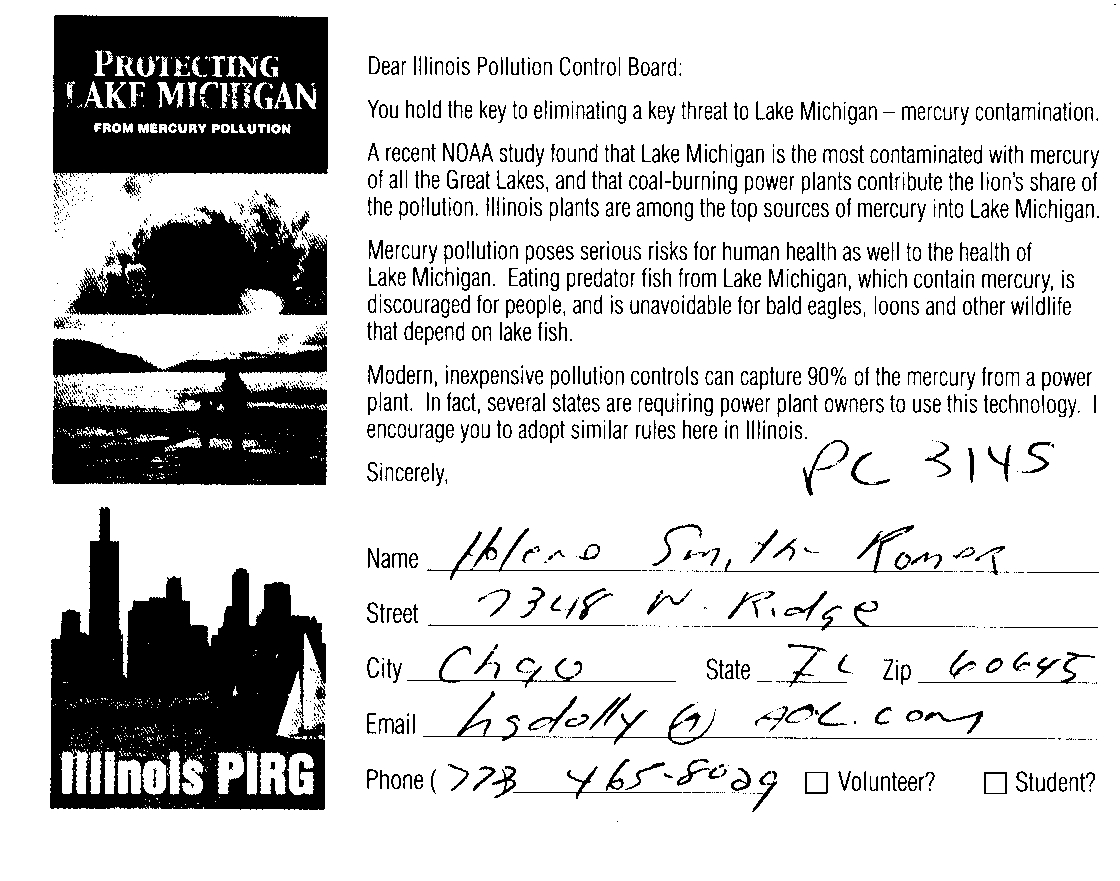 PROTECTING
LAKE MICHIGAN
FROM MERCURY POLLUTION
Dear Illinois Pollution Control Board:
You hold the key to eliminating a key threat to Lake Michigan – mercury contamination.
A recent NOAA study found that Lake Michigan is the most contaminated with mercury
of all the Great Lakes, and that coal-burning power plants contribute the lion's share of
the pollution. Illinois plants are among the top sources of mercury into Lake Michigan.
Mercury pollution poses serious risks for human health as well to the health of
Lake Michigan. Eating predator fish from Lake Michigan, which contain mercury, is
discouraged for people, and is unavoidable for bald eagles, loons and other wildlife
that depend on lake fish.
Modern, inexpensive pollution controls can capture 90% of the mercury from a power
plant. In fact, several states are requiring power plant owners to use this technology. I
encourage you to adopt similar rules here in Illinois.
Sincerely,
PC 3145
Name Smith
Street 7348 W. Ridge
City Chgo State IL Zip 60645
Email hsdolly@AOL.com
Phone (773 465-8029 Volunteer? Student?
Illinois PIRG